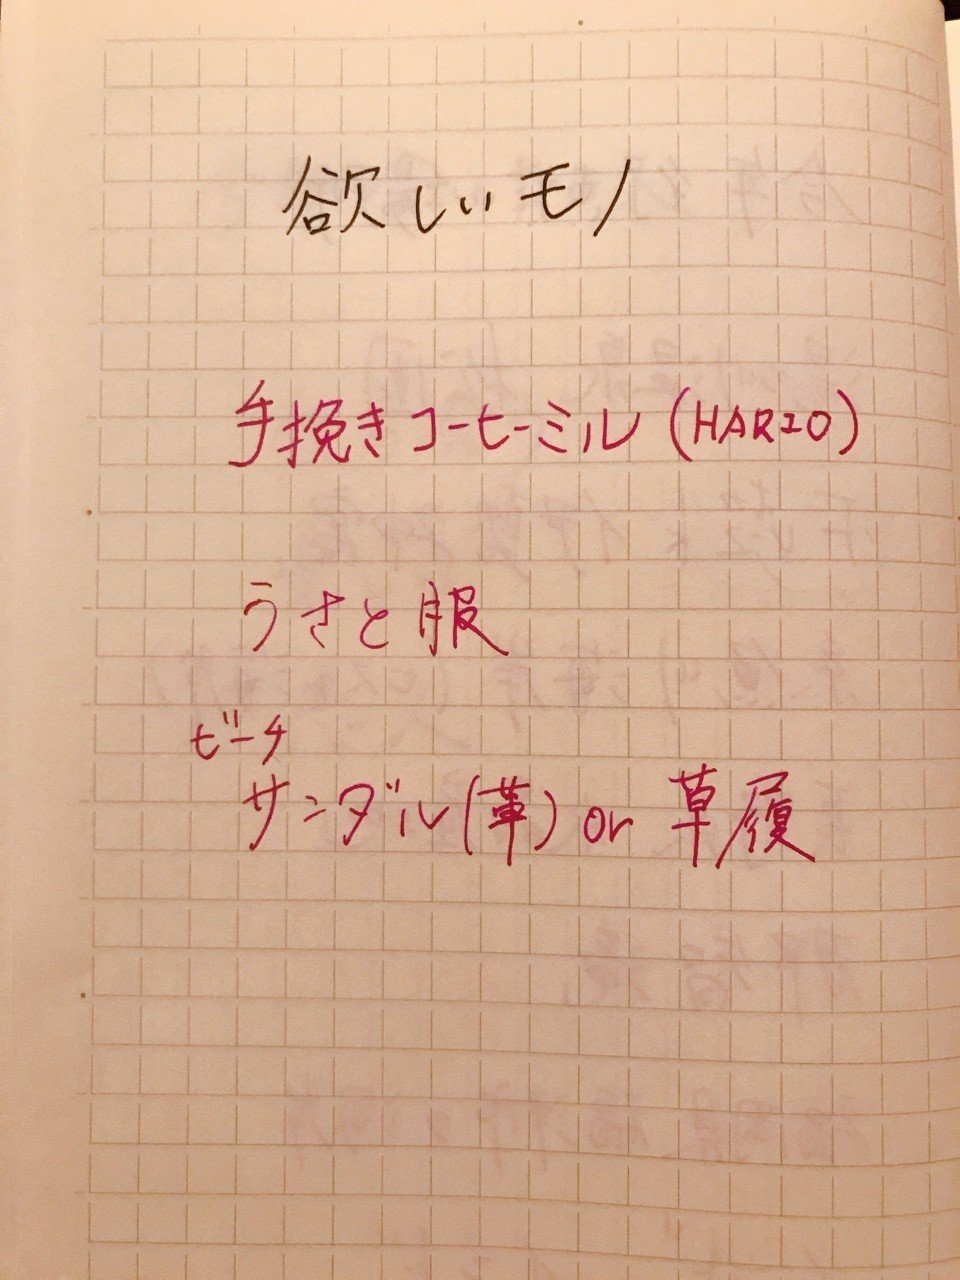 欲しいモノ
手挽きコーヒーミル (HARIO)
うさと服
ビーチ
サンダル(革) or 草履